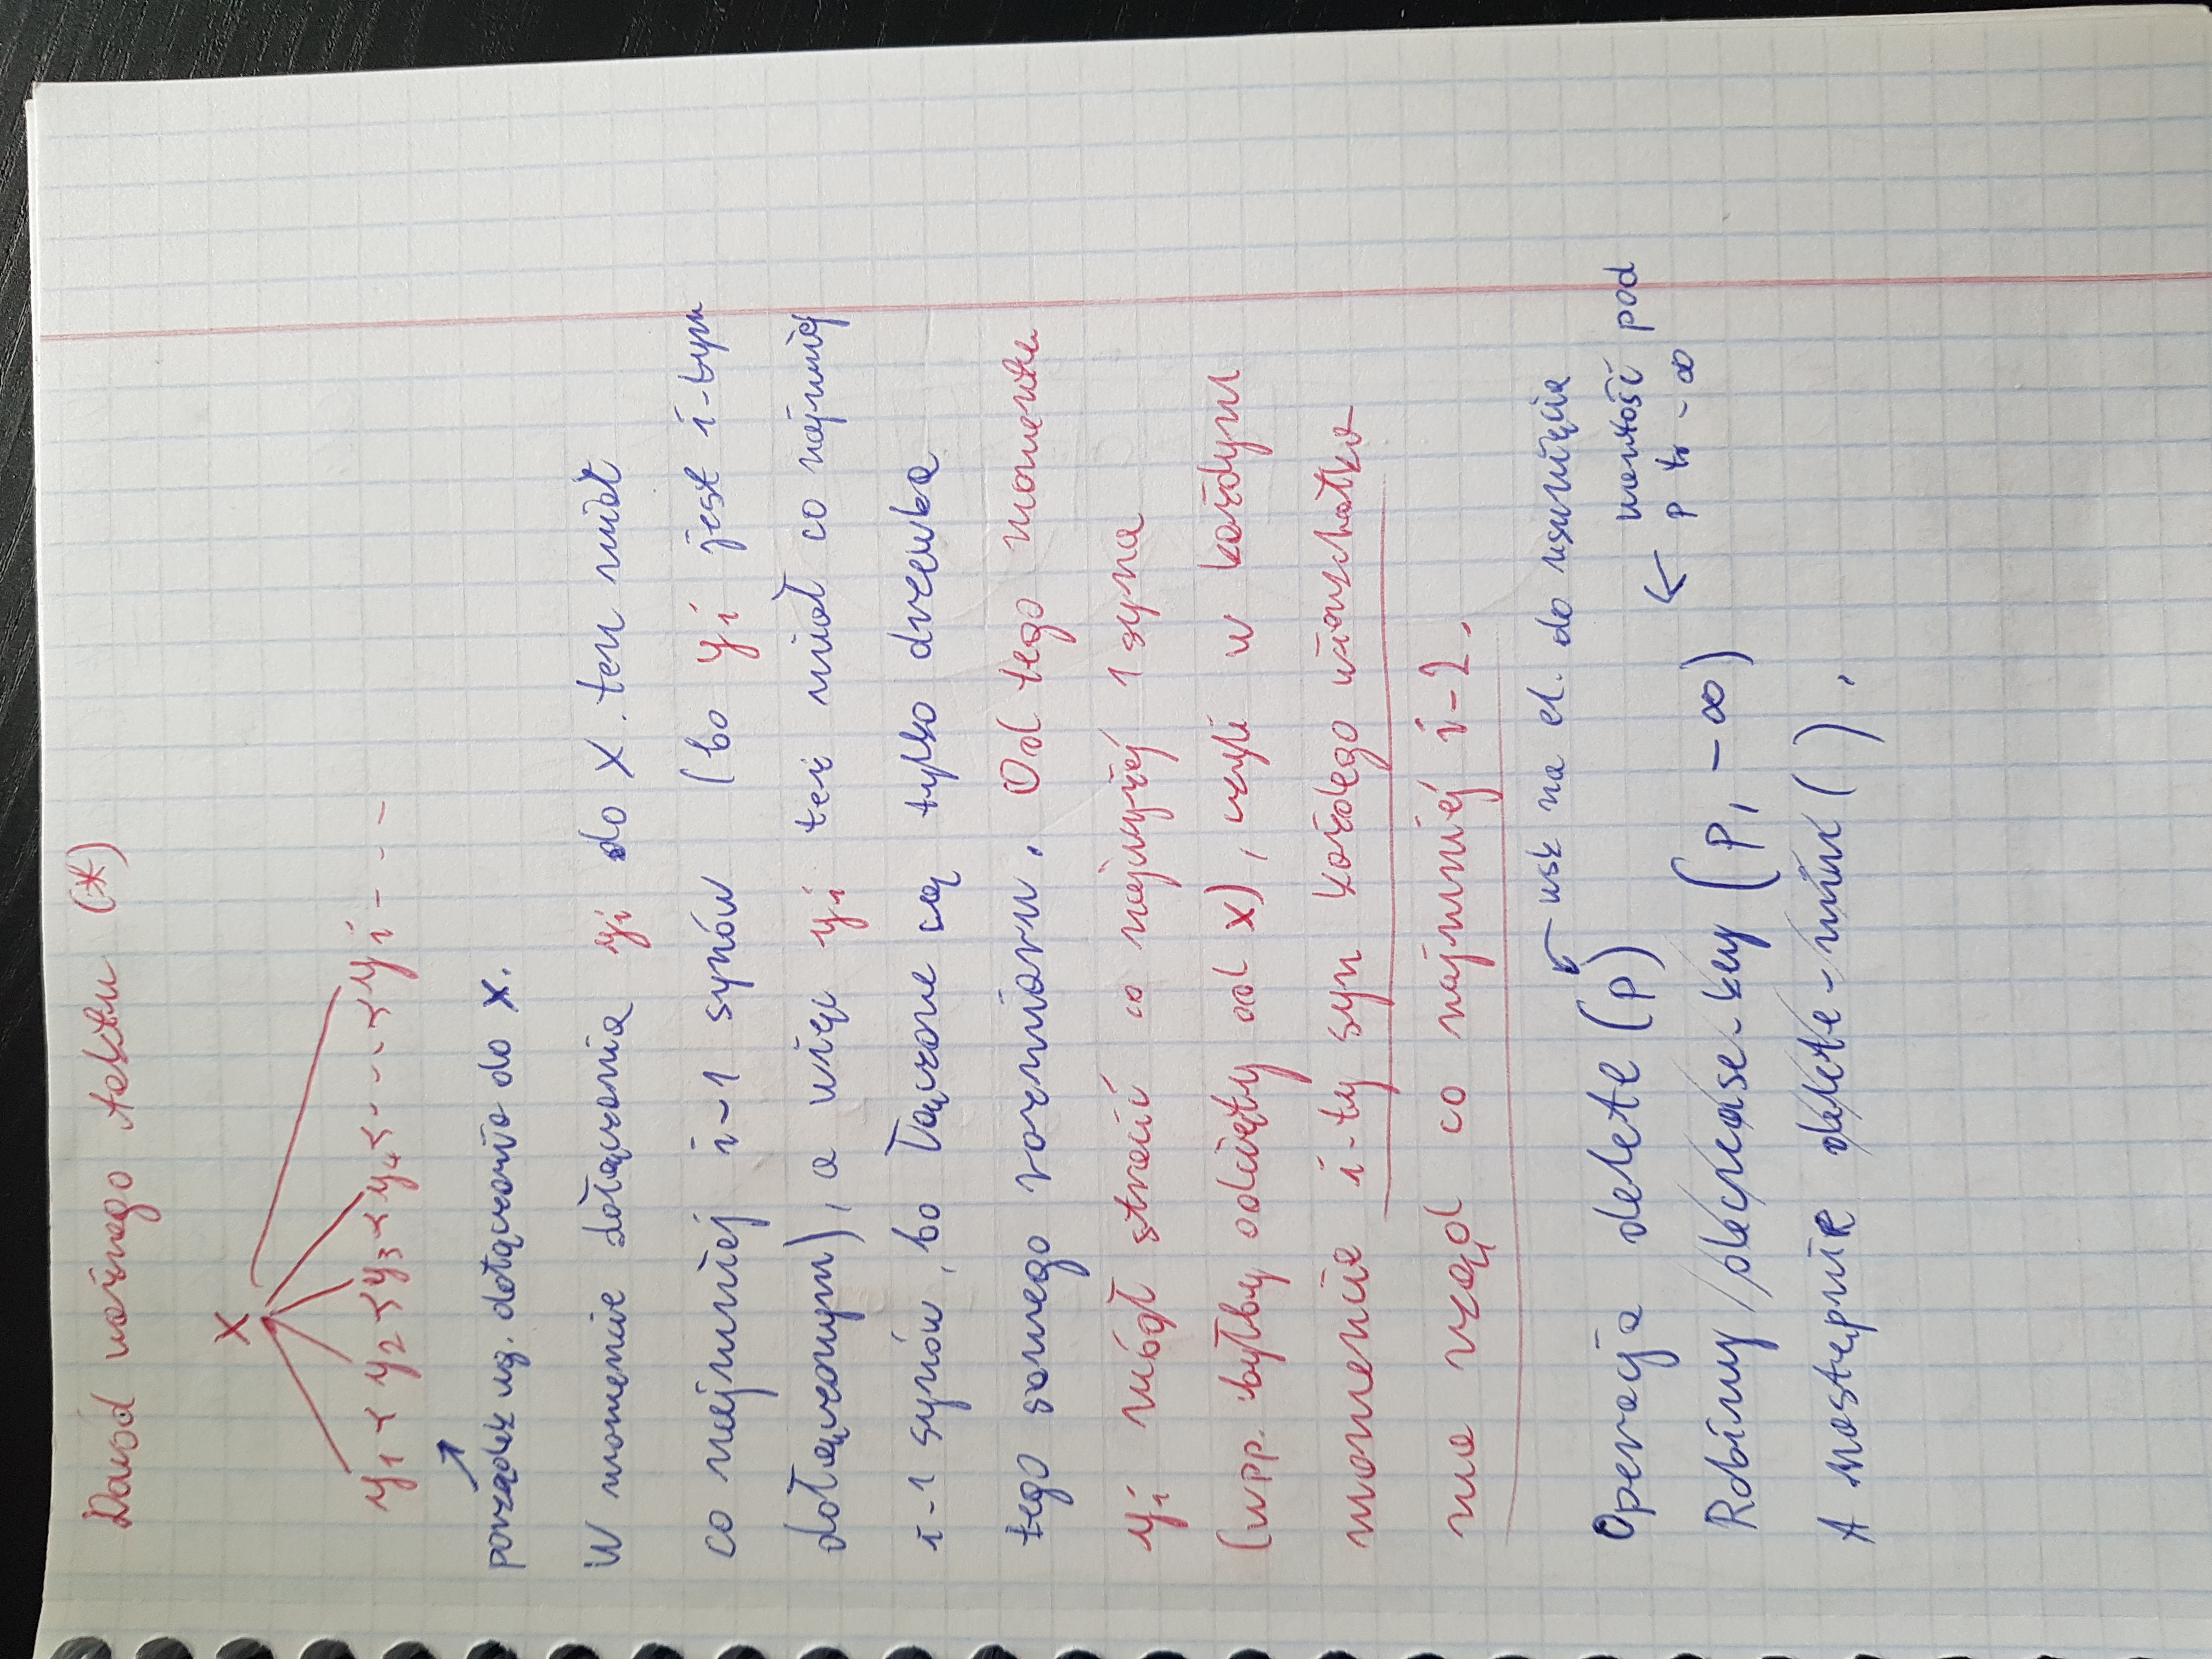 Dowód ważnego faktu (*)
x
y1 < y2 < y3 < y4 < - - - < yi - - -
porządek wg. dołączania do x.
W momencie dołączania yi do x. ten miał
co najmniej i-1 synów (bo yi jest i-tym
dołączonym), a więc yi też miał co najmniej
i-1 synów, bo łączone są tylko drzewka
tego samego rozmiaru. Od tego momentu
yi mógł stracić co najwyżej 1 syna
(wpp. byłby odcięty od x), czyli w każdym
momencie i-ty syn każdego wierzchołka
ma rząd co najmniej i-2.
wsk na el. do usunięcia
Operacja delete (p)
wartość pod
p to -∞
Robimy decrease-key (p, -∞)
A następnie delete-min ( ).